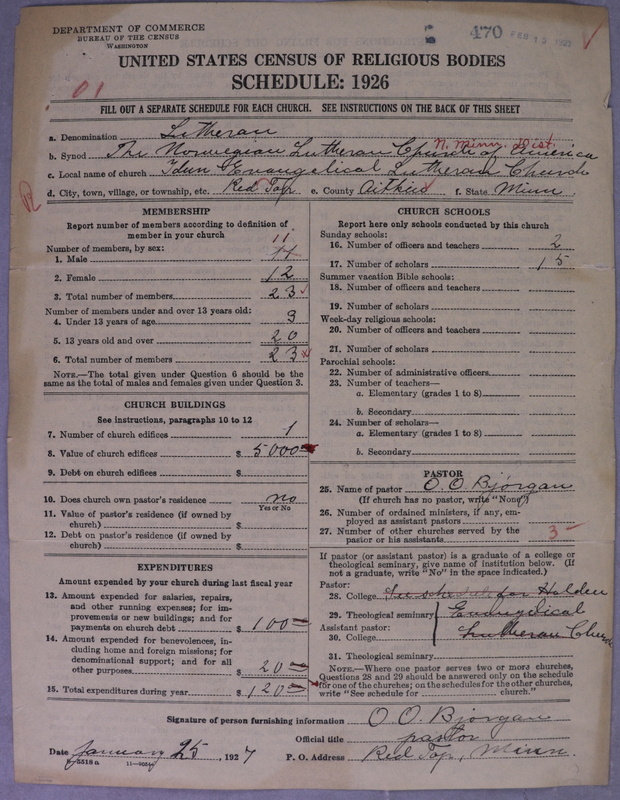 DEPARTMENT OF COMMERCE
BUREAU OF THE CENSUS
WASHINGTON
470 FEB 15 1927
UNITED STATES CENSUS OF RELIGIOUS BODIES
SCHEDULE: 1926
01
FILL OUT A SEPARATE SCHEDULE FOR EACH CHURCH. SEE INSTRUCTIONS ON THE BACK OF THIS SHEET
a. Denomination Lutheran
N. Minn. Dist.
b. Synod The Norwegian Lutheran Church of America
c. Local name of church Idun Evangelical Lutheran Church
d. City, town, village, or township, etc. Red Top e. County Aitkin f. State Minn.
MEMBERSHIP
Report number of members according to definition of
member in your church
Number of members, by sex:
11
1. Male 11
2. Female 12
3. Total number of members 23
Number of members under and over 13 years old:
4. Under 13 years of age 3
5. 13 years old and over 20
6. Total number of members 23
NOTE.—The total given under Question 6 should be
same as the total of males and females given under Question 3.
CHURCH BUILDINGS
See instructions, paragraphs 10 to 12
7. Number of church edifices 1
8. Value of church edifices $ 5000
9. Debt on church edifices $
10. Does church own pastor's residence no
Yes or No
11. Value of pastor's residence (if owned by
church) $
12. Debt on pastor's residence (if owned by
church) $
EXPENDITURES
Amount expended by your church during last fiscal year
13. Amount expended for salaries, repairs,
and other running expenses; for im-
provements or new buildings; and for
payments on church debt $ 100
14. Amount expended for benevolences, in-
cluding home and foreign missions; for
denominational support; and for all
other purposes $ 20
15. Total expenditures during year $ 120
CHURCH SCHOOLS
Report here only schools conducted by this church
Sunday schools:
16. Number of officers and teachers 2
17. Number of scholars 15
Summer vacation Bible schools:
18. Number of officers and teachers
19. Number of scholars
Week-day religious schools:
20. Number of officers and teachers
21. Number of scholars
Parochial schools:
22. Number of administrative officers
23. Number of teachers—
a. Elementary (grades 1 to 8)
b. Secondary
24. Number of scholars—
a. Elementary (grades 1 to 8)
b. Secondary
PASTOR
25. Name of pastor O. O. Bjorgan
(If church has no pastor, write "None")
26. Number of ordained ministers, if any, em-
ployed as assistant pastors
27. Number of other churches served by the
pastor or his assistants 3
If pastor (or assistant pastor) is a graduate of a college or
theological seminary, give name of institution below. (If
not a graduate, write "No" in the space indicated.)
Pastor:
28. College See schedule for Holden
29. Theological seminary Evangelical
Assistant pastor:
30. College Lutheran Church
31. Theological seminary
NOTE.—Where one pastor serves two or more churches,
Questions 28 and 29 should be answered only on the schedule
for one of the churches; on the schedules for the other churches,
write "See schedule for church."
Signature of person furnishing information O. O. Bjorgan
Official title pastor
Date January 25, 1927 P. O. Address Red Top, Minn.